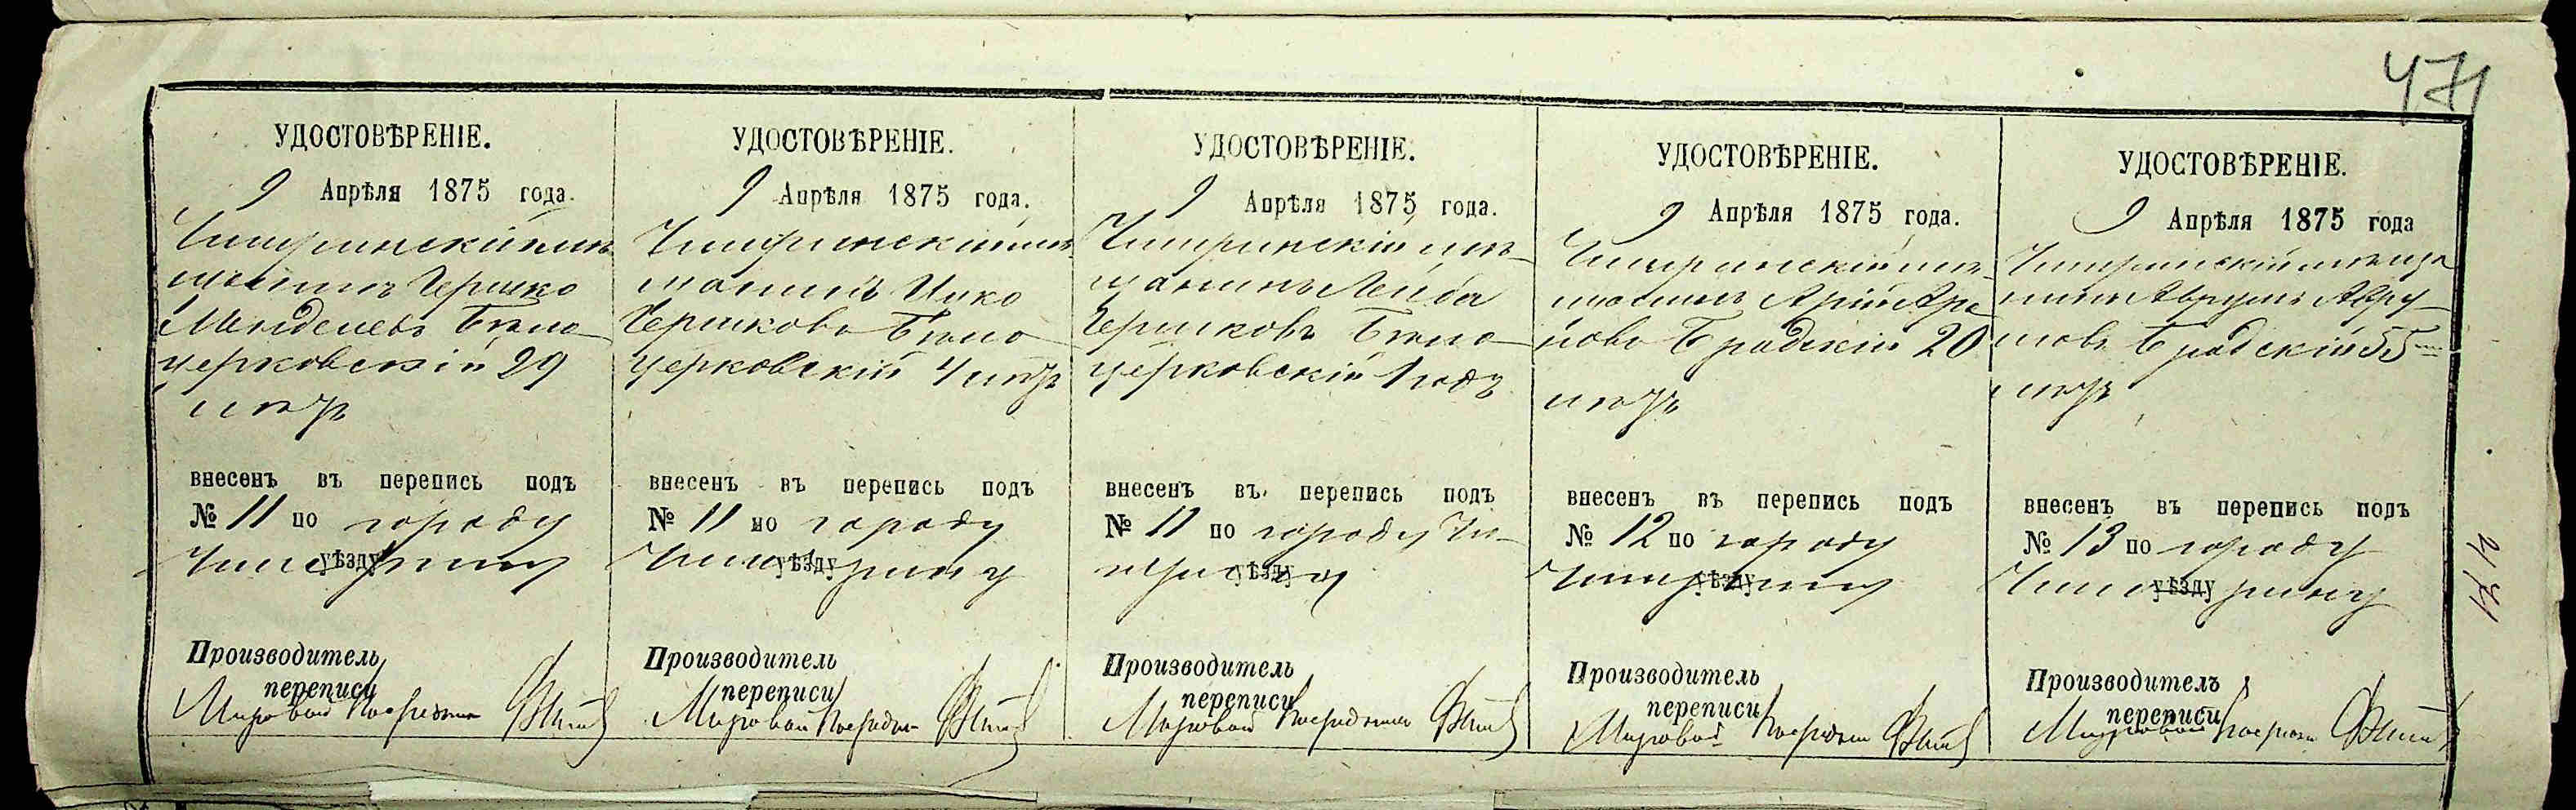 471
УДОСТОВѢРЕНІЕ.
9 Апрѣля 1875 года.
Чигиринскій мѣ-
щанинъ Гершко
Менделевъ Бѣло-
церковскій 29
лѣтъ
внесенъ въ перепись подъ
№ 11 по городу
уѣзду
Чигирину
Производитель
переписи
Мировой Посредникъ
УДОСТОВѢРЕНІЕ.
9 Апрѣля 1875 года.
Чигиринскій мѣ-
щанинъ Ицко
Гершковъ Бѣло-
церковскій 4 лѣтъ
внесенъ въ перепись подъ
№ 11 по городу
уѣзду
Чигирину
Производитель
переписи
Мировой Посредник
УДОСТОВѢРЕНІЕ.
9 Апрѣля 1875 года.
Чигиринскій мѣ-
щанинъ Лейба
Гершковъ Бѣло-
церковскій 1 годъ
внесенъ въ перепись подъ
№ 11 по городу Чи-
уѣзду
гирину
Производитель
переписи
Мировой Посредникъ
УДОСТОВѢРЕНІЕ.
9 Апрѣля 1875 года.
Чигиринскій мѣ-
щанинъ Арій
Бродскій 20
лѣтъ
внесенъ въ перепись подъ
№ 12 по городу
уѣзду
Чигирину
Производитель
переписи
Мировой Посредник
УДОСТОВѢРЕНІЕ.
9 Апрѣля 1875 года
Чигиринскій мѣща
нинъ Аврумъ Авру-
мовъ Бродскій 55
лѣтъ
внесенъ въ перепись подъ
№ 13 по городу
уѣзду
Чигирину
Производитель
переписи
Мировой Посредник
471